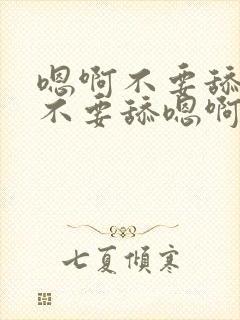 嗯啊不要舔
不要舔嗯啊
七夏倾寒